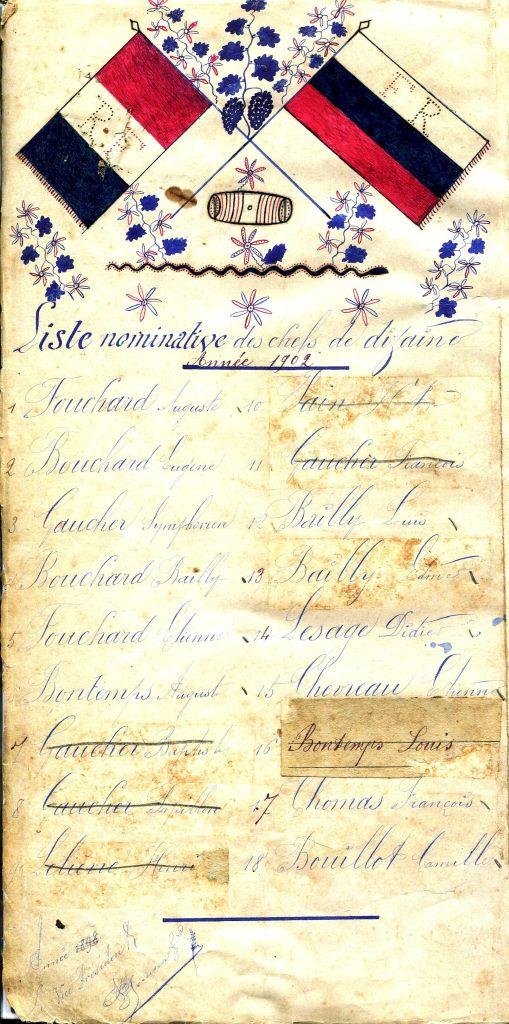 RF
FR
Liste nominative des chefs de dizaine
Année 1902
1 Fouchard Auguste
2 Bouchard Eugène
3 Gaucher Symphorien
Bouchard Bailly
5 Fouchard Etienne
Bontemps Auguste
7 Gaucher Baptiste
8 Gaucher Papillon
Henri
10 Jain
11 Gaucher François
12 Bailly Luis
13 Bailly Edmé
14 Lesage Didier
15 Chevreau Etienne
16 Bontemps Louis
17 Thomas François
18 Bouillot Camille
Année 1898
Vice Président